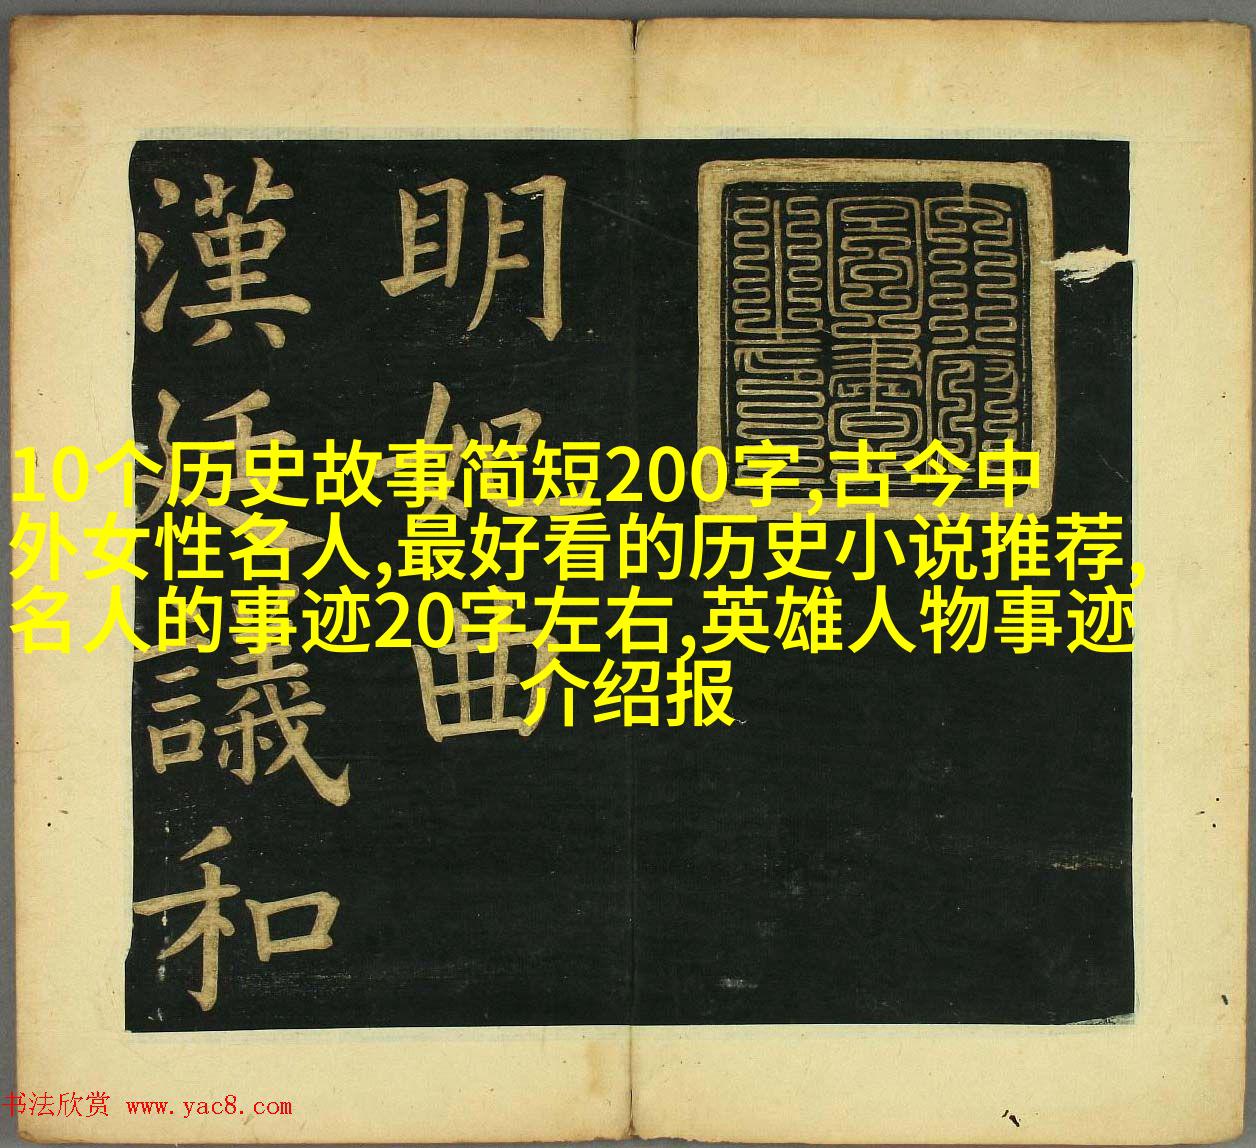 明妃曲
漢廷議和
10个历史故事简短200字,古今中
外女性名人,最好看的历史小说推荐,
名人的事迹20字左右,英雄人物事迹
介绍报
书法欣赏 www.yac8.com